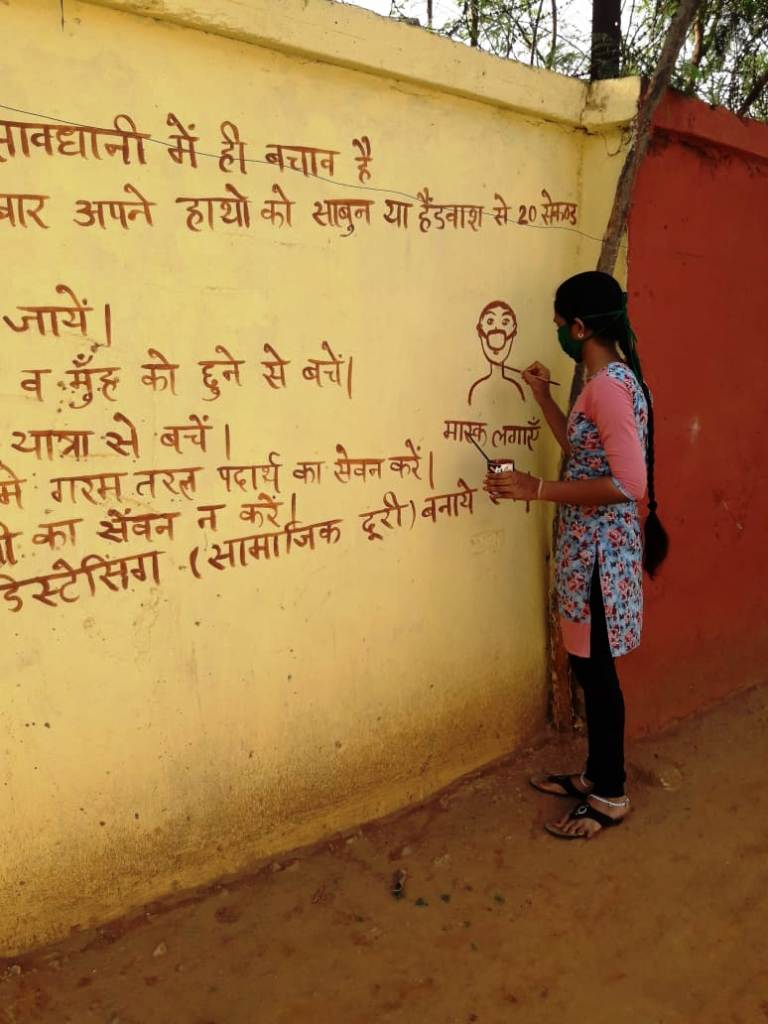 सावधानी में ही बचाव है
बार अपने हाथो को साबुन या हैंडवाश से 20 सेकण्ड
जायें।
व मुँह को छुने से बचें।
मास्क लगाएँ
यात्रा से बचें।
मे गरम तरल पदार्थ का सेवन करें।
का सेंवन न करें।
डिस्टेसिंग (सामाजिक दूरी) बनाये